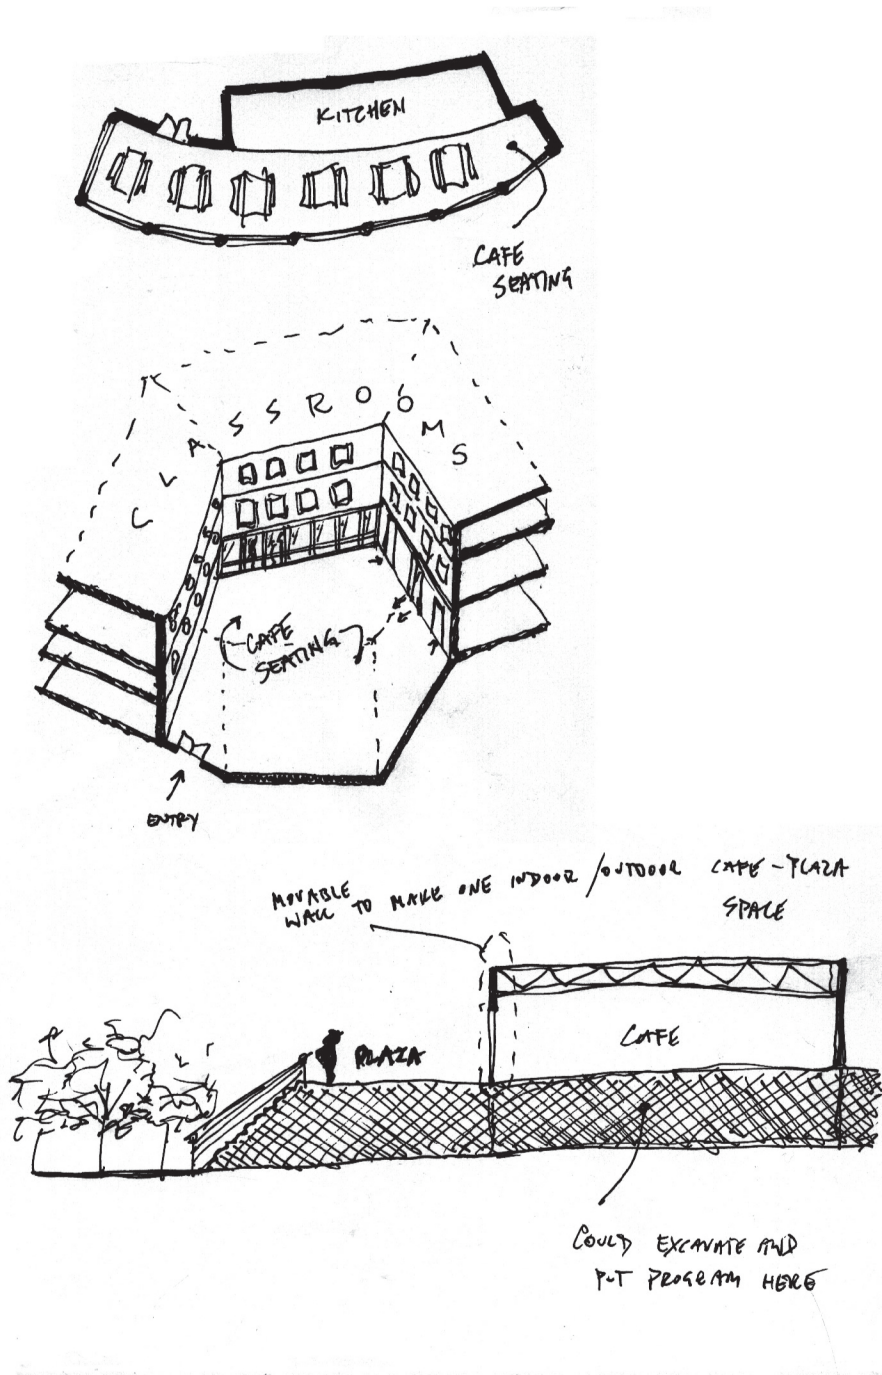 KITCHEN
CAFE
SEATING
CLASSROOMS
CAFE
SEATING
ENTRY
MOVABLE
WALL TO MAKE ONE INDOOR/OUTDOOR CAFE-PLAZA
SPACE
PLAZA
CAFE
COULD EXCAVATE AND
PUT PROGRAM HERE